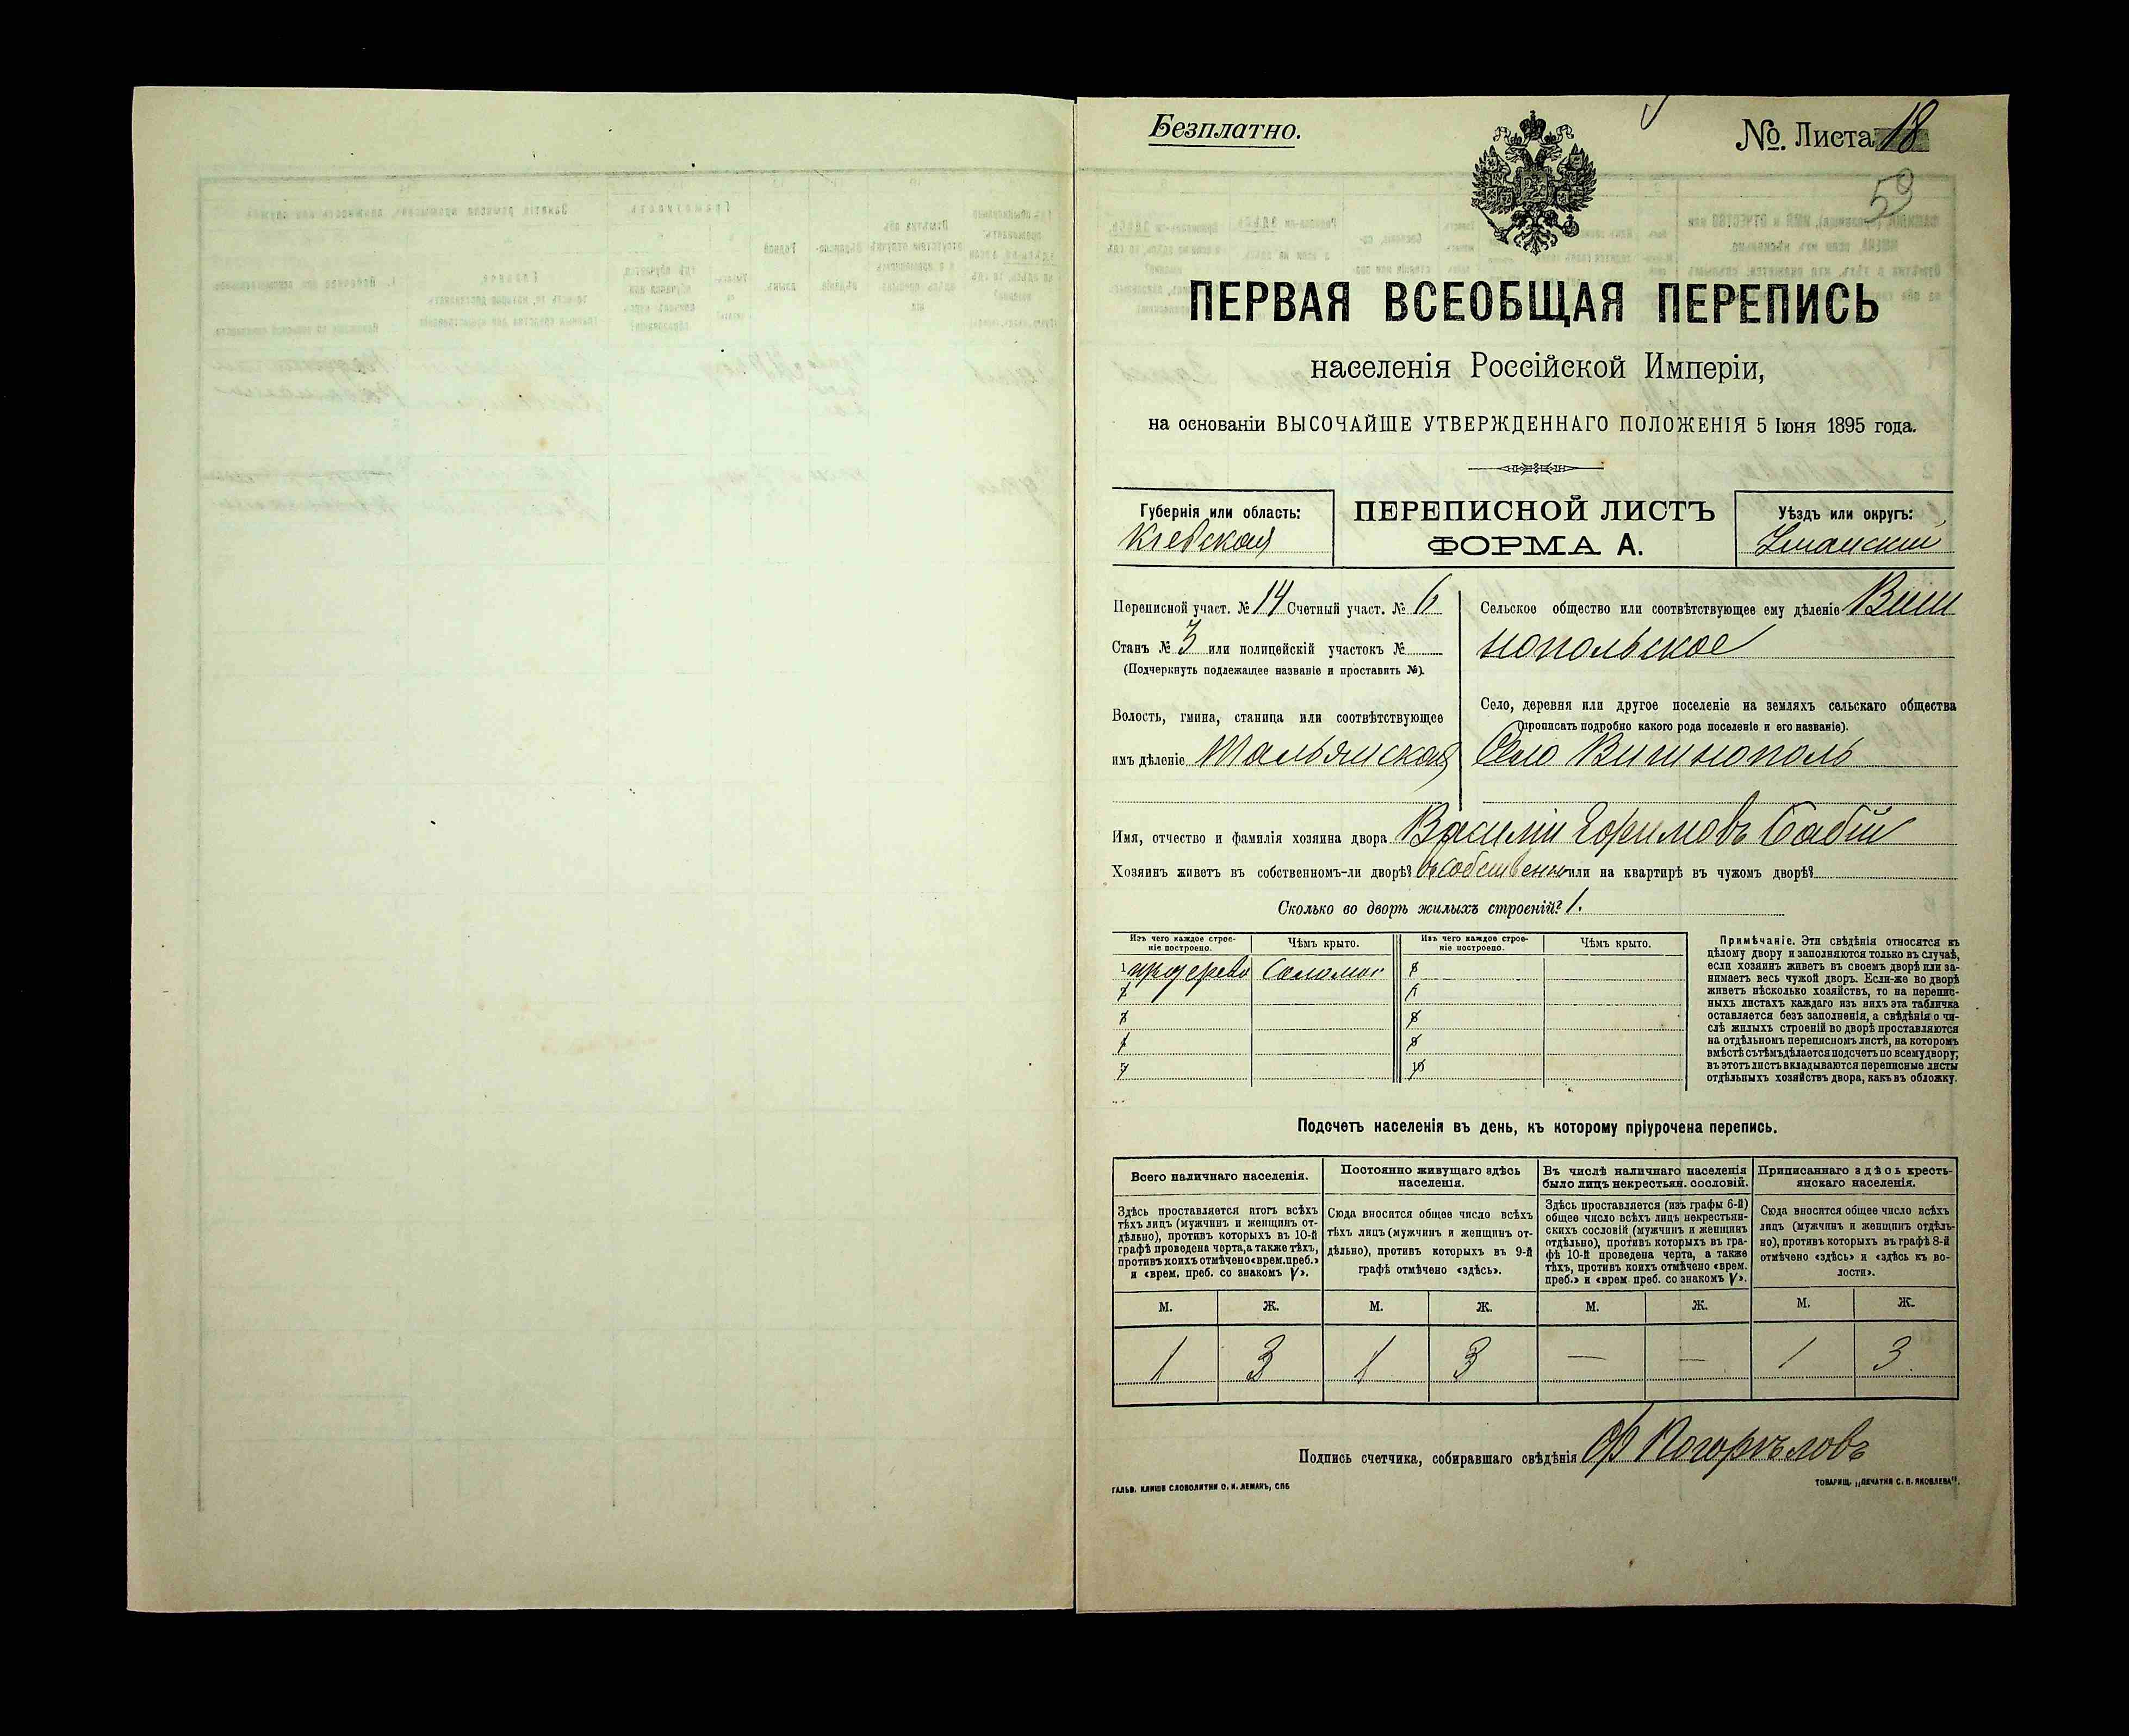 Безплатно.
№. Листа 18
59
ПЕРВАЯ ВСЕОБЩАЯ ПЕРЕПИСЬ
населенія Россійской Имперіи,
на основаніи ВЫСОЧАЙШЕ УТВЕРЖДЕННАГО ПОЛОЖЕНІЯ 5 Іюня 1895 года.
Губернія или область:
Кіевская
ПЕРЕПИСНОЙ ЛИСТЪ
ФОРМА А.
Уѣздъ или округъ:
Уманскій
Переписной участ. № 14 Счетный участ. № 6
Станъ № 3 или полицейскій участокъ №
(Подчеркнуть подлежащее названіе и проставить №).
Волость, гмина, станица или соотвѣтствующее
имъ дѣленіе Тальянская
Сельское общество или соотвѣтствующее ему дѣленіе Виш
нопольское
Село, деревня или другое поселеніе на земляхъ сельскаго общества
(прописать подробно какого рода поселеніе и его названіе).
Село Вишнополь
Имя, отчество и фамилія хозяина двора Василій Ефимовъ Бабій
Хозяинъ живетъ въ собственномъ-ли дворѣ? въ собственно или на квартирѣ въ чужомъ дворѣ?
Сколько во дворѣ жилыхъ строеній? 1.
Изъ чего каждое строе-
ніе построено.
Чѣмъ крыто.
Изъ чего каждое строе-
ніе построено.
Чѣмъ крыто.
1 Соломою
Примѣчаніе. Эти свѣдѣнія относятся къ
цѣлому двору и заполняются только въ случаѣ,
если хозяинъ живетъ въ своемъ дворѣ или за-
нимаетъ весь чужой дворъ. Если-же во дворѣ
живетъ нѣсколько хозяйствъ, то на перепис-
ныхъ листахъ каждаго изъ нихъ эта табличка
оставляется безъ заполненія, а свѣдѣнія о чи-
слѣ жилыхъ строеній во дворѣ проставляются
на отдѣльномъ переписномъ листѣ, на которомъ
вмѣстѣ съ тѣмъ дѣлается подсчетъ по всему двору;
въ этотъ листъ вкладываются переписные листы
отдѣльныхъ хозяйствъ двора, какъ въ обложку.
Подсчетъ населенія въ день, къ которому пріурочена перепись.
Всего наличнаго населенія.
Постоянно живущаго здѣсь
населенія.
Въ числѣ наличнаго населенія
было лицъ некрестьян. сословій.
Приписаннаго здѣсь кресть-
янскаго населенія.
Здѣсь проставляется итогъ всѣхъ
тѣхъ лицъ (мужчинъ и женщинъ от-
дѣльно), противъ которыхъ въ 10-й
графѣ проведена черта, а также тѣхъ,
противъ коихъ отмѣчено «врем. преб.»
и «врем. преб. со знакомъ V».
Сюда вносится общее число всѣхъ
тѣхъ лицъ (мужчинъ и женщинъ от-
дѣльно), противъ которыхъ въ 9-й
графѣ отмѣчено «здѣсь».
Здѣсь проставляется (изъ графы 6-й)
общее число всѣхъ лицъ некрестьян-
скихъ сословій (мужчинъ и женщинъ
отдѣльно), противъ которыхъ въ гра-
фѣ 10-й проведена черта, а также
тѣхъ, противъ коихъ отмѣчено «врем.
преб.» и «врем преб. со знакомъ V».
Сюда вносится общее число всѣхъ
лицъ (мужчинъ и женщинъ отдѣль-
но), противъ которыхъ въ графѣ 8-й
отмѣчено «здѣсь» и «здѣсь къ во-
лости».
М. Ж. М. Ж. М. Ж. М. Ж.
1 3 1 3 — — 1 3
Подпись счетчика, собиравшаго свѣдѣнія Ф Погорѣловъ
ГАЛЬВ. КЛИШЕ СЛОВОЛИТНИ О. И. ЛЕМАНЪ, СПБ
ТОВАРИЩ. „ПЕЧАТНЯ С. П. ЯКОВЛЕВА".